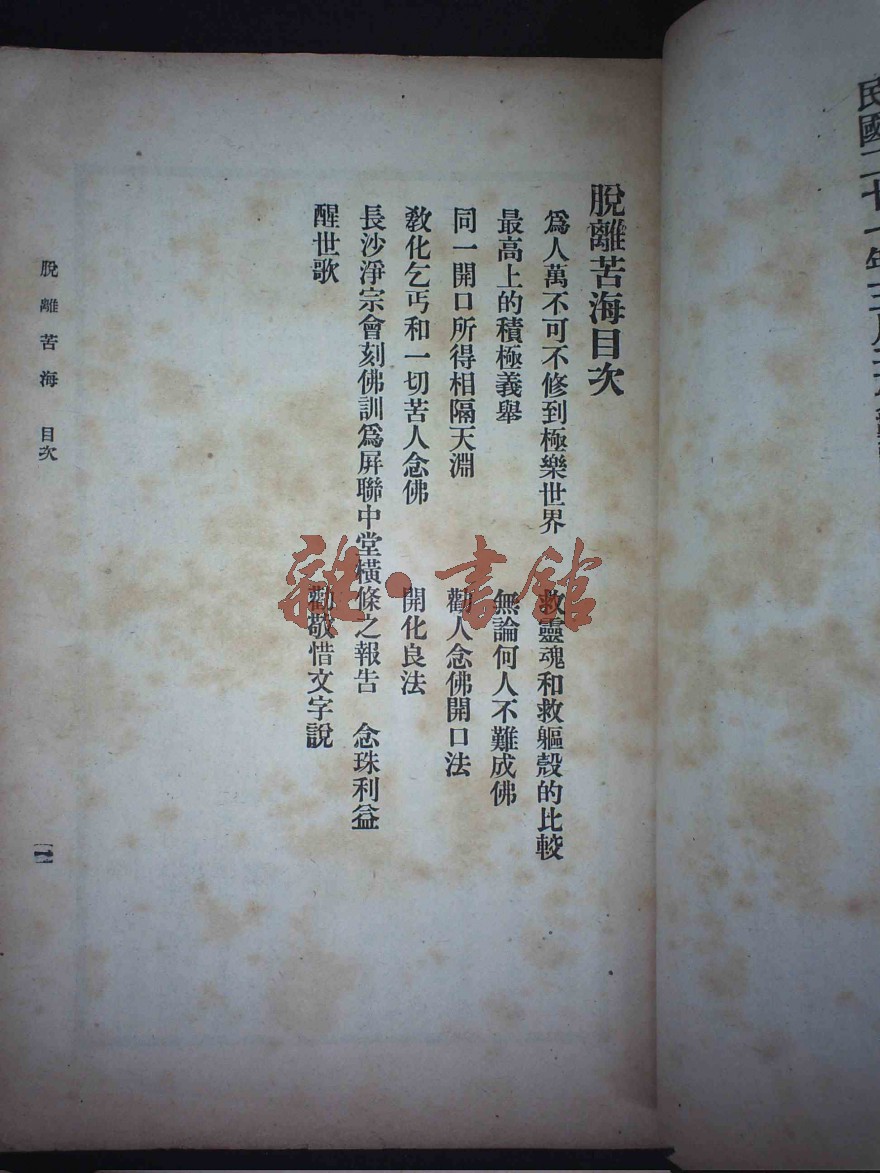 民國二十一年三月
脫離苦海目次
爲人萬不可不修到極樂世界　救靈魂和救軀殼的比較
最高上的積極義舉　無論何人不難成佛
同一開口所得相隔天淵　勸人念佛開口法
教化乞丐和一切苦人念佛　開化良法
長沙淨宗會刻佛訓爲屏聯中堂橫條之報告　念珠利益
醒世歌　勸敬惜文字說
脫離苦海　目次
一
雜·書館